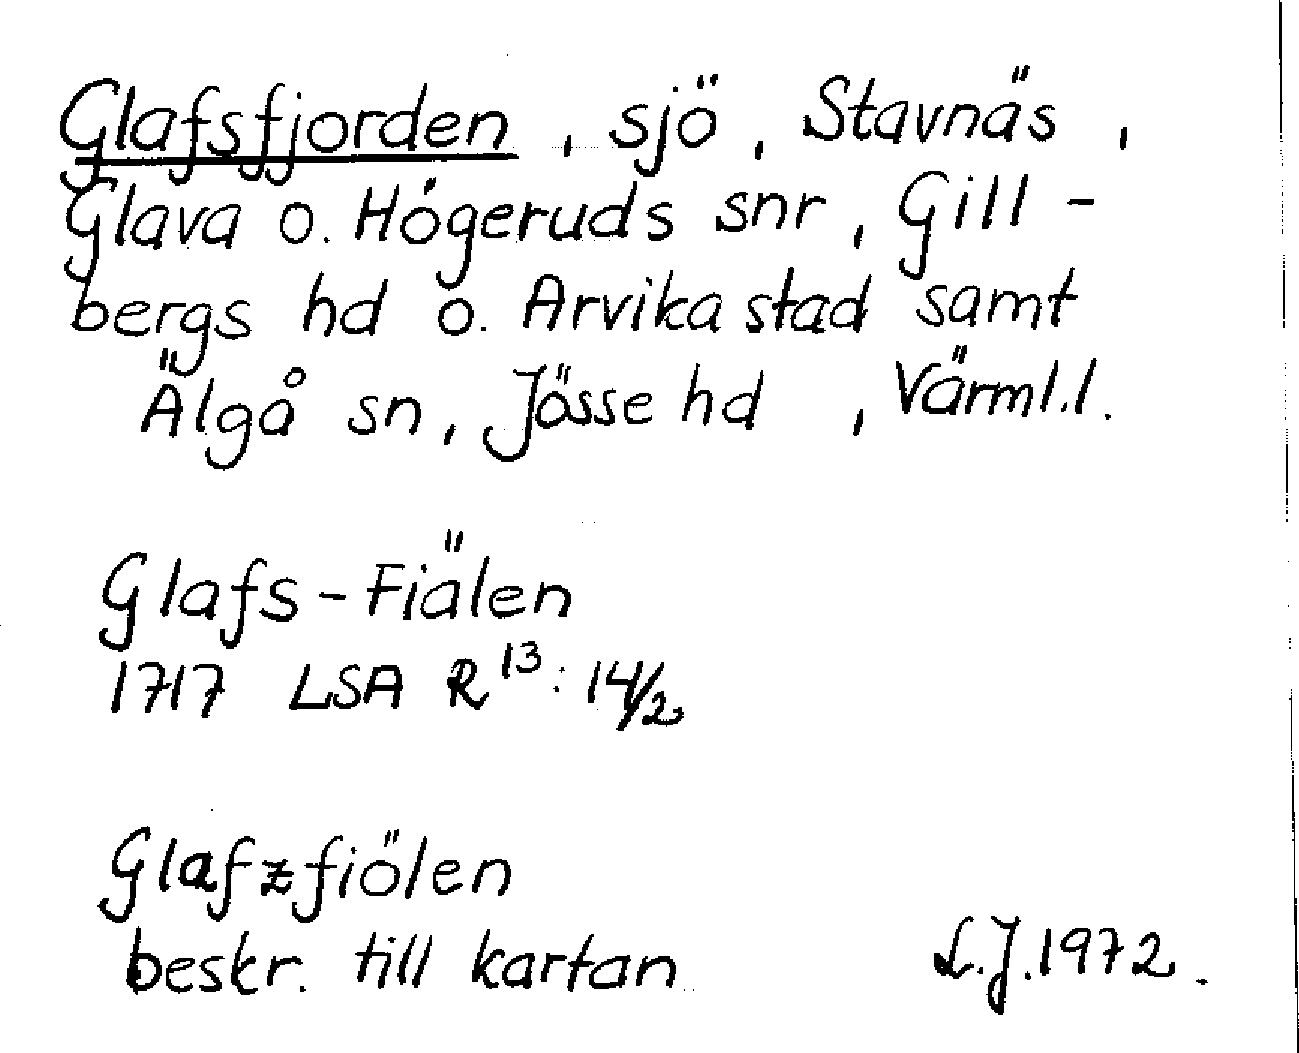 Glafsfjorden, sjö, Stavnäs,
Glava o. Högeruds snr, Gill-
bergs hd o. Arvika stad samt
Älgå sn, Jösse hd, Värml.l.
Glafs-Fiälen
1717 LSA R¹³: 14/2
Glafzfiölen
beskr. till kartan
L.J. 1972.